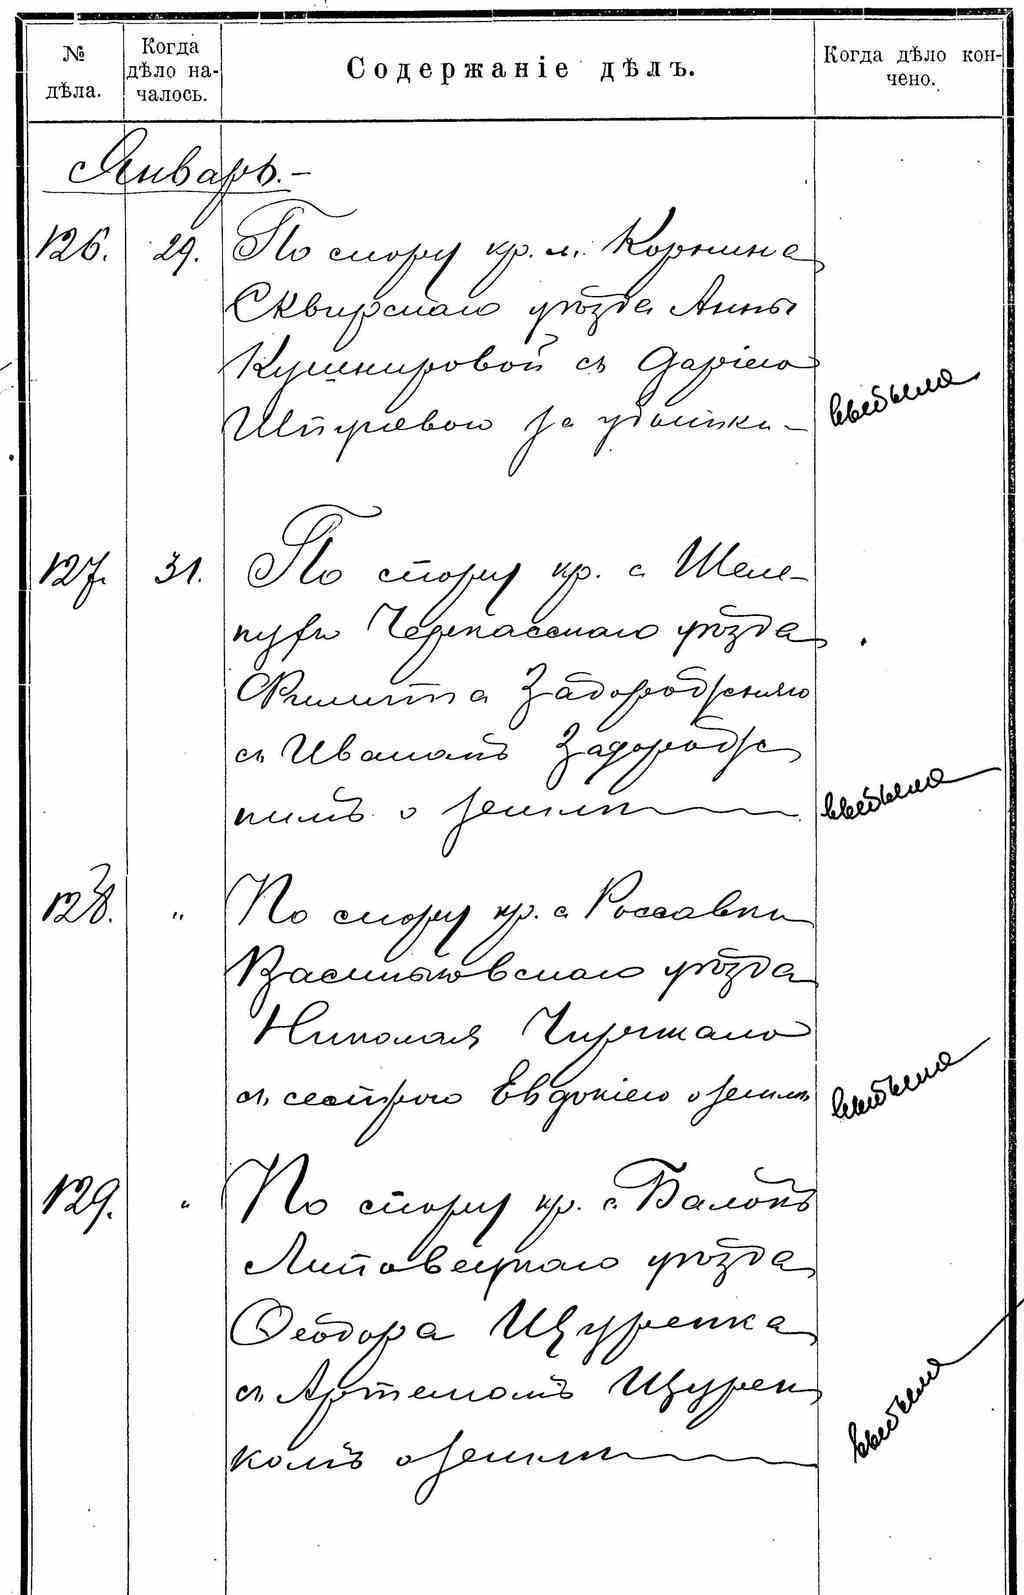 №
дѣла.
Когда
дѣло на-
чалось.
Содержаніе дѣлъ.
Когда дѣло кон-
чено.
Январь.-
126. 29. По спору кр. м. Корнина
Сквирскаго уѣзда Анны
Кушнировой съ Даріею
за убытки -
выбыла
127. 31. По спору кр. с Шеле-
пухъ Черкасскаго уѣзда
Филиппа Задорожняго
съ Иваномъ Задорож
нимъ о землѣ
выбыла
128. " По спору кр. с. Россавки
Васильковскаго уѣзда
Николая
съ сестрою Евдокіею о землѣ
выбыла
129. " По спору кр. с.
Липовецкаго уѣзда
Ѳеодора Щуренка
съ Артемомъ Щурен
комъ о землѣ
выбыла